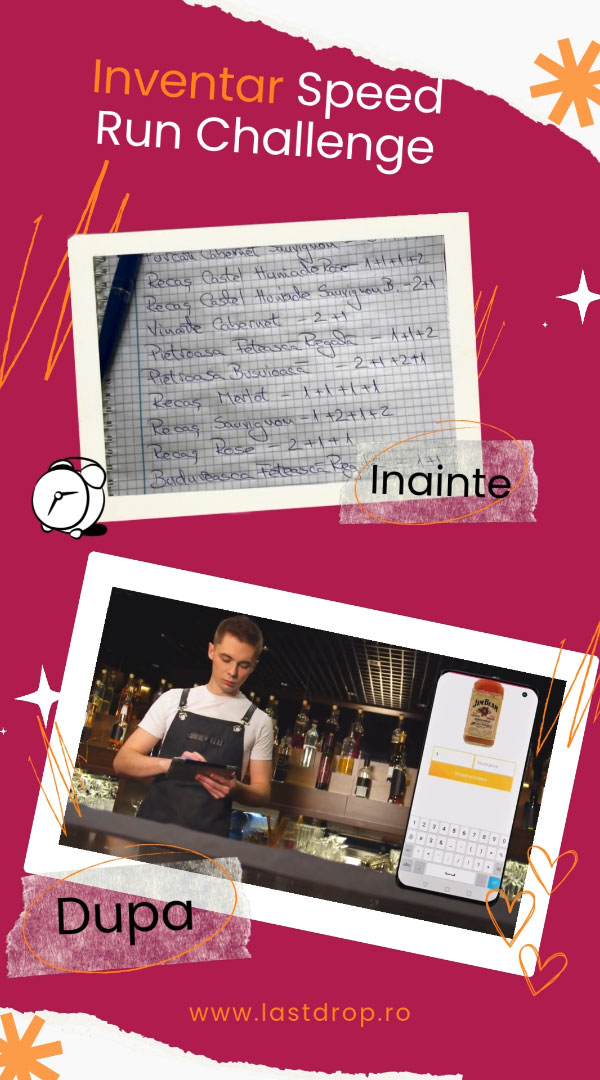 Inventar Speed
Run Challenge
Cabernet Sauvignon -
Recaș Castel Huniade Rose - 1+1+2
Recaș Castel Huniade Sauvignon B. - 2+1
Vinarte Cabernet - 2+1
Pietroasa Feteasca Regala - 1+1+2
Pietroasa Busuioaca - 2+1+2+1
Recaș Merlot - 1+1+1+1
Recaș Sauvignon - 1+2+1+2
Recaș Rose - 2+1+1
Budureasca Feteasca
Inainte
JIM BEAM
1
Dupa
www.lastdrop.ro